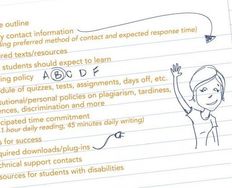 e outline
y contact information
ing preferred method of contact and expected response time)
red texts/resources
students should expect to learn
ing policy A B C D F
dule of quizzes, tests, assignments, days off, etc.
tutional/personal policies on plagiarism, tardiness,
nces, discrimination and more
cipated time commitment
1 hour daily reading, 45 minutes daily writing)
for success
quired downloads/plug-ins
hnical support contacts
sources for students with disabilities